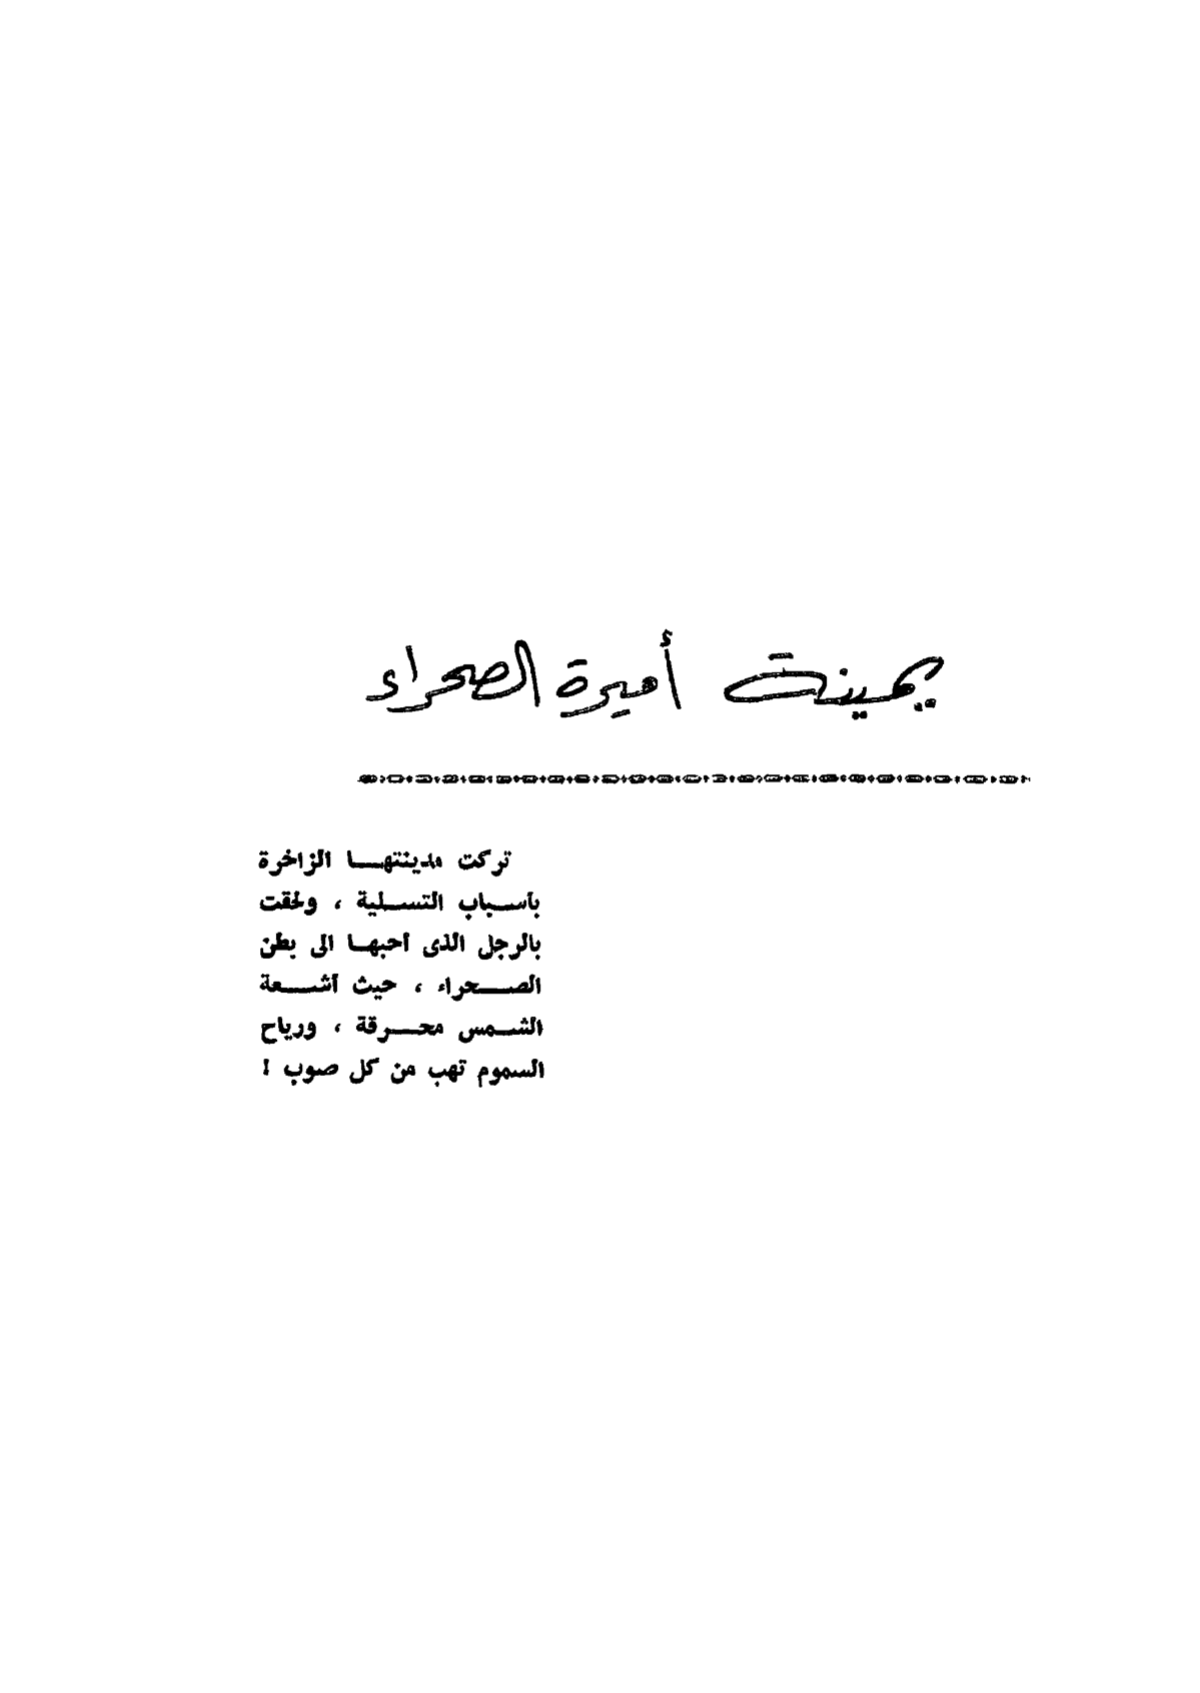 يمينت أميرة الصحراء
تركت مدينتها الزاخرة
بأسباب التسلية ، ولحقت
بالرجل الذى أحبها الى بطن
الصحراء ، حيث أشعة
الشمس محرقة ، ورياح
السموم تهب من كل صوب !